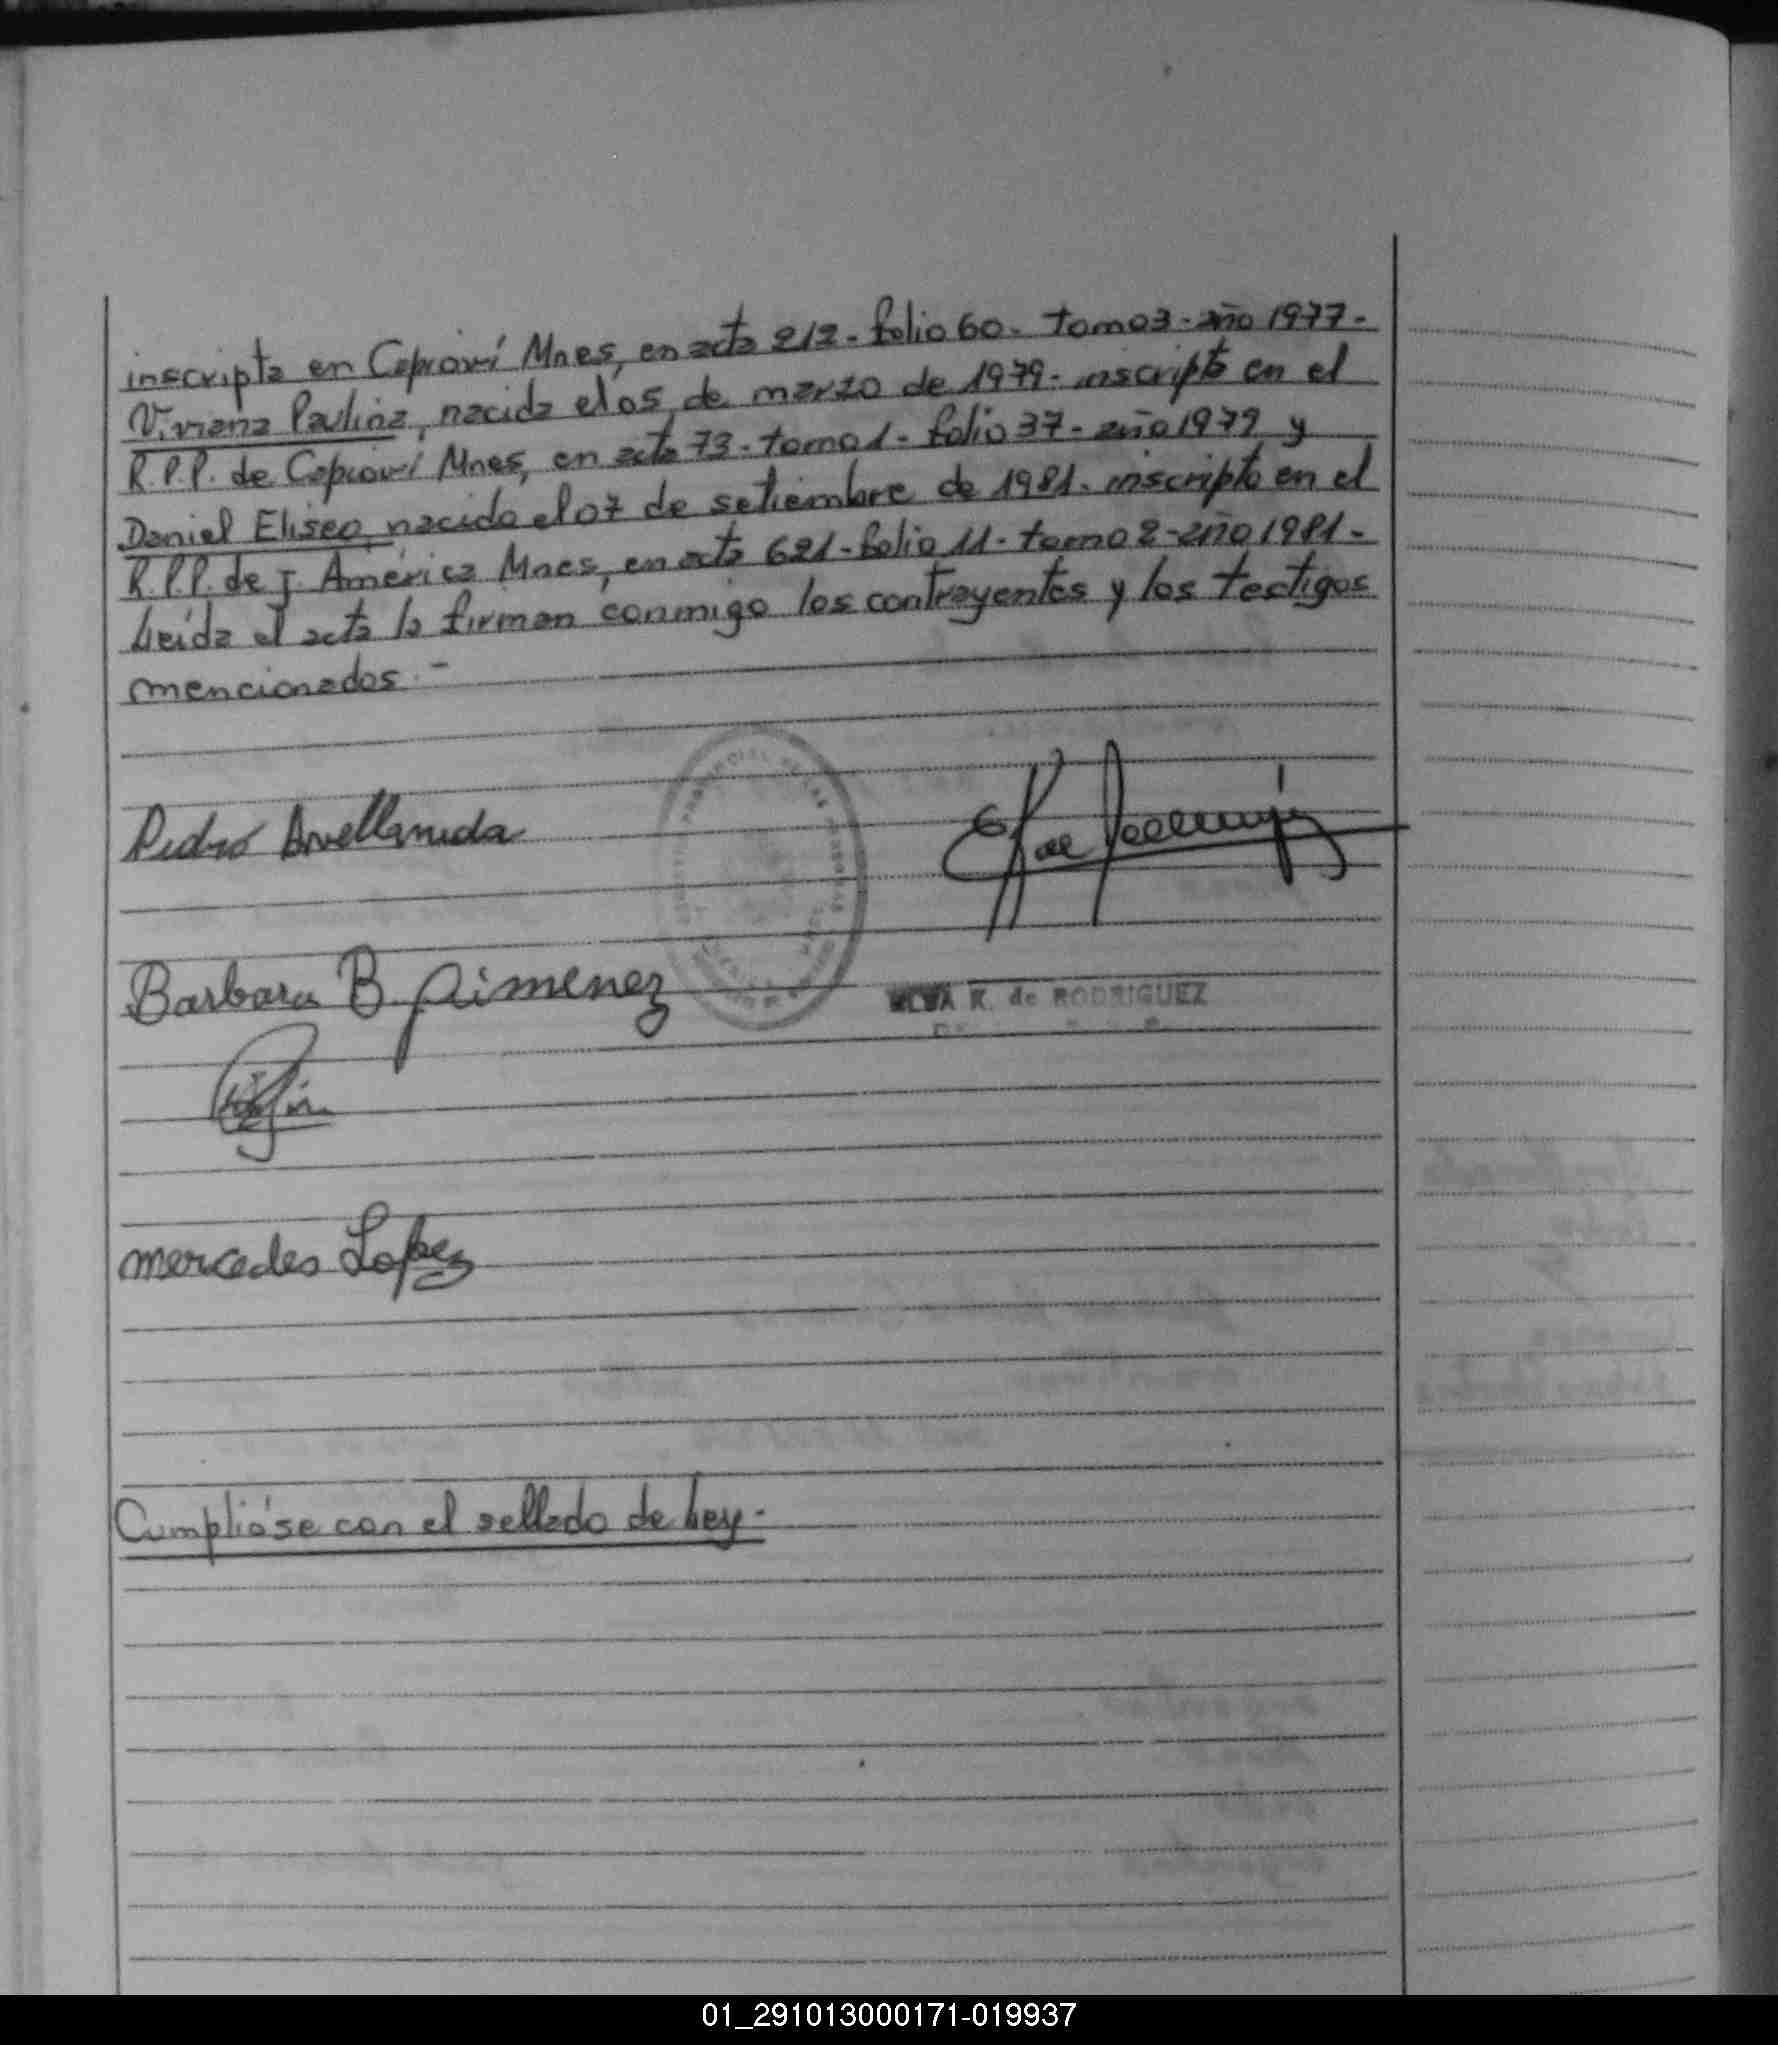 inscripta en Caprioví Mnes, en acta 212 - folio 60 - tomo 3 - año 1977 -
Viviana Paulina, nacida el 05 de marzo de 1979 - inscripta en el
R.P.P. de Caprioví Mnes, en acta 73 - tomo 1 - folio 37 - año 1979 y
Daniel Eliseo, nacido el 07 de setiembre de 1981 - inscripto en el
R.P.P. de J. América Mnes, en acta 621 - folio 11 - tomo 2 - año 1981 -
Leída el acta la firman conmigo los contrayentes y los testigos
mencionados. -
Pedro Avellaneda
Barbara B Gimenez
ELVA R. de RODRIGUEZ
mercedes Lopez
Cumplióse con el sellado de Ley -
01_291013000171-019937